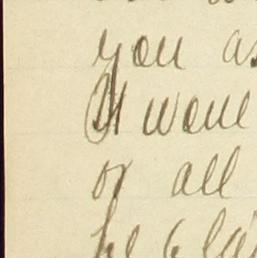 you as
It woul
or all
be gla